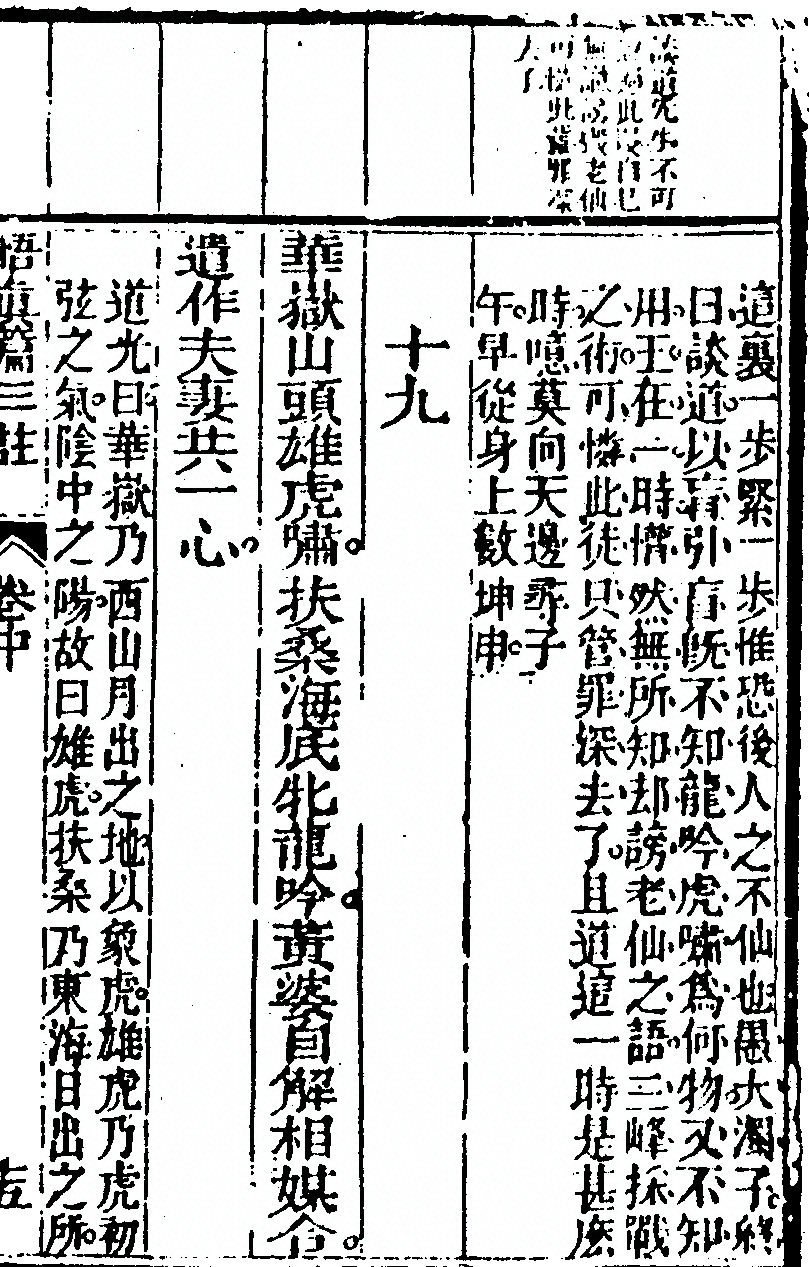 談道先生不可
可憐此輩罪深
去了
這裏一步緊一步惟恐後人之不仙也愚夫濁子終
日談道以盲引盲旣不知龍吟虎嘯爲何物又不知
用工在一時懵然無所知却謗老仙之語三峰採戰
之術可憐此徒只管罪深去了且道這一時是甚麽
時噫莫向天邊尋子
午早從身上數坤申
十九
華嶽山頭雄虎嘯扶桑海底牝龍吟黃婆自解相媒合
遣作夫妻共一心
道光曰華嶽乃西山月出之地以象虎雄虎乃虎初
弦之氣陰中之陽故曰雄虎扶桑乃東海日出之所
悟真篇三註
卷中